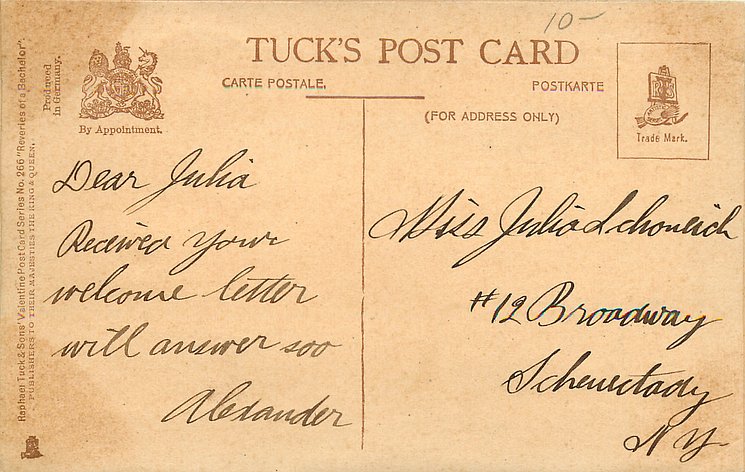 10-
TUCK'S POST CARD
CARTE POSTALE.
POSTKARTE
(FOR ADDRESS ONLY)
Produced
in Germany.
By Appointment.
Trade Mark.
Raphael Tuck & Sons' Valentine Post Card Series No. 266 "Reveries of a Bachelor".
PUBLISHERS TO THEIR MAJESTIES THE KING & QUEEN.
Dear Julia
Received your
welcome letter
will answer soo
Alexander
Miss Julia Schoneich
#12 Broadway
Schenectady
N Y